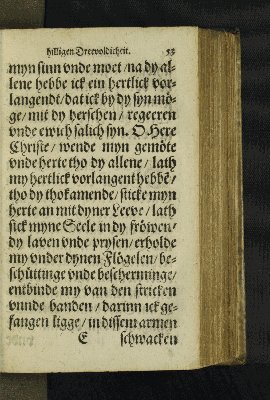 hilligen Dreevoldicheit. 53
myn sinn vnde moet / na dy al-
lene hebbe ick ein hertlick vor-
langendt / dat ick by dy syn mö-
ge / mit dy herschen / regeeren
vnde ewich salich syn. O Here
Christe / wende myn gemöte
vnde herte tho dy allene / lath
my hertlick vorlangent hebbē /
tho dy thokamende / sticke myn
herte an mit dyner Leeve / lath
sick myne Seele in dy fröwen /
dy laven vnde prysen / erholde
my vnder dynen Flögelen / be-
schüttinge vnde bescherminge /
entbinde my van den stricken
vnnde banden / darinn ick ge-
fangen ligge / in dissem armen
E schwacken